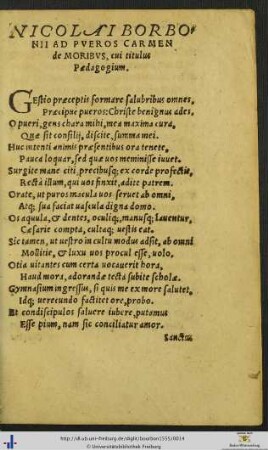 NICOLAI BORBO
NII AD PVEROS CARMEN
de MORIBVS, cui titulus
Pædagogium.
GEstio præceptis formare salubribus omnes,
Præcipue pueros: Christe benignus ades.
O pueri, gens chara mihi, mea maxima cura,
Quæ sit consilij, discite, summa mei.
Huc intenti animis præsentibus ora tenete,
Pauca loquar, sed quæ uos meminisse iuuet.
Surgite mane citi, precibusq; ex corde profectis,
Recta illum, qui uos finxit, adite patrem.
Orate, ut puros macula uos seruet ab omni,
Atq; sua faciat uascula digna domo.
Os aquula, & dentes, oculiq;, manusq; lauentur,
Cæsarie compta, cultaq; uestis eat.
Sic tamen, ut uestro in cultu modus adsit, ab omni
Mollitie, & luxu uos procul esse, uolo.
Otia uitantes cum certa uocauerit hora,
Haud mora, adorandæ tecta subite scholæ.
Gymnasium ingressus, si quis me ex more salutet,
Idq; uerecundo factitet ore, probo.
Et condiscipulos saluere iubere, putamus
Esse pium, nam sic conciliatur amor.
Sanctæ
http://dl.ub.uni-freiburg.de/diglit/bourbon1555/0014
© Universitätsbibliothek Freiburg
Baden-Württemberg